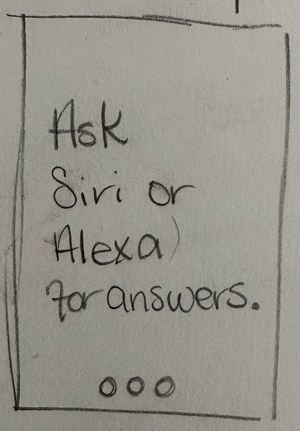 Ask
Siri or
Alexa)
for answers.